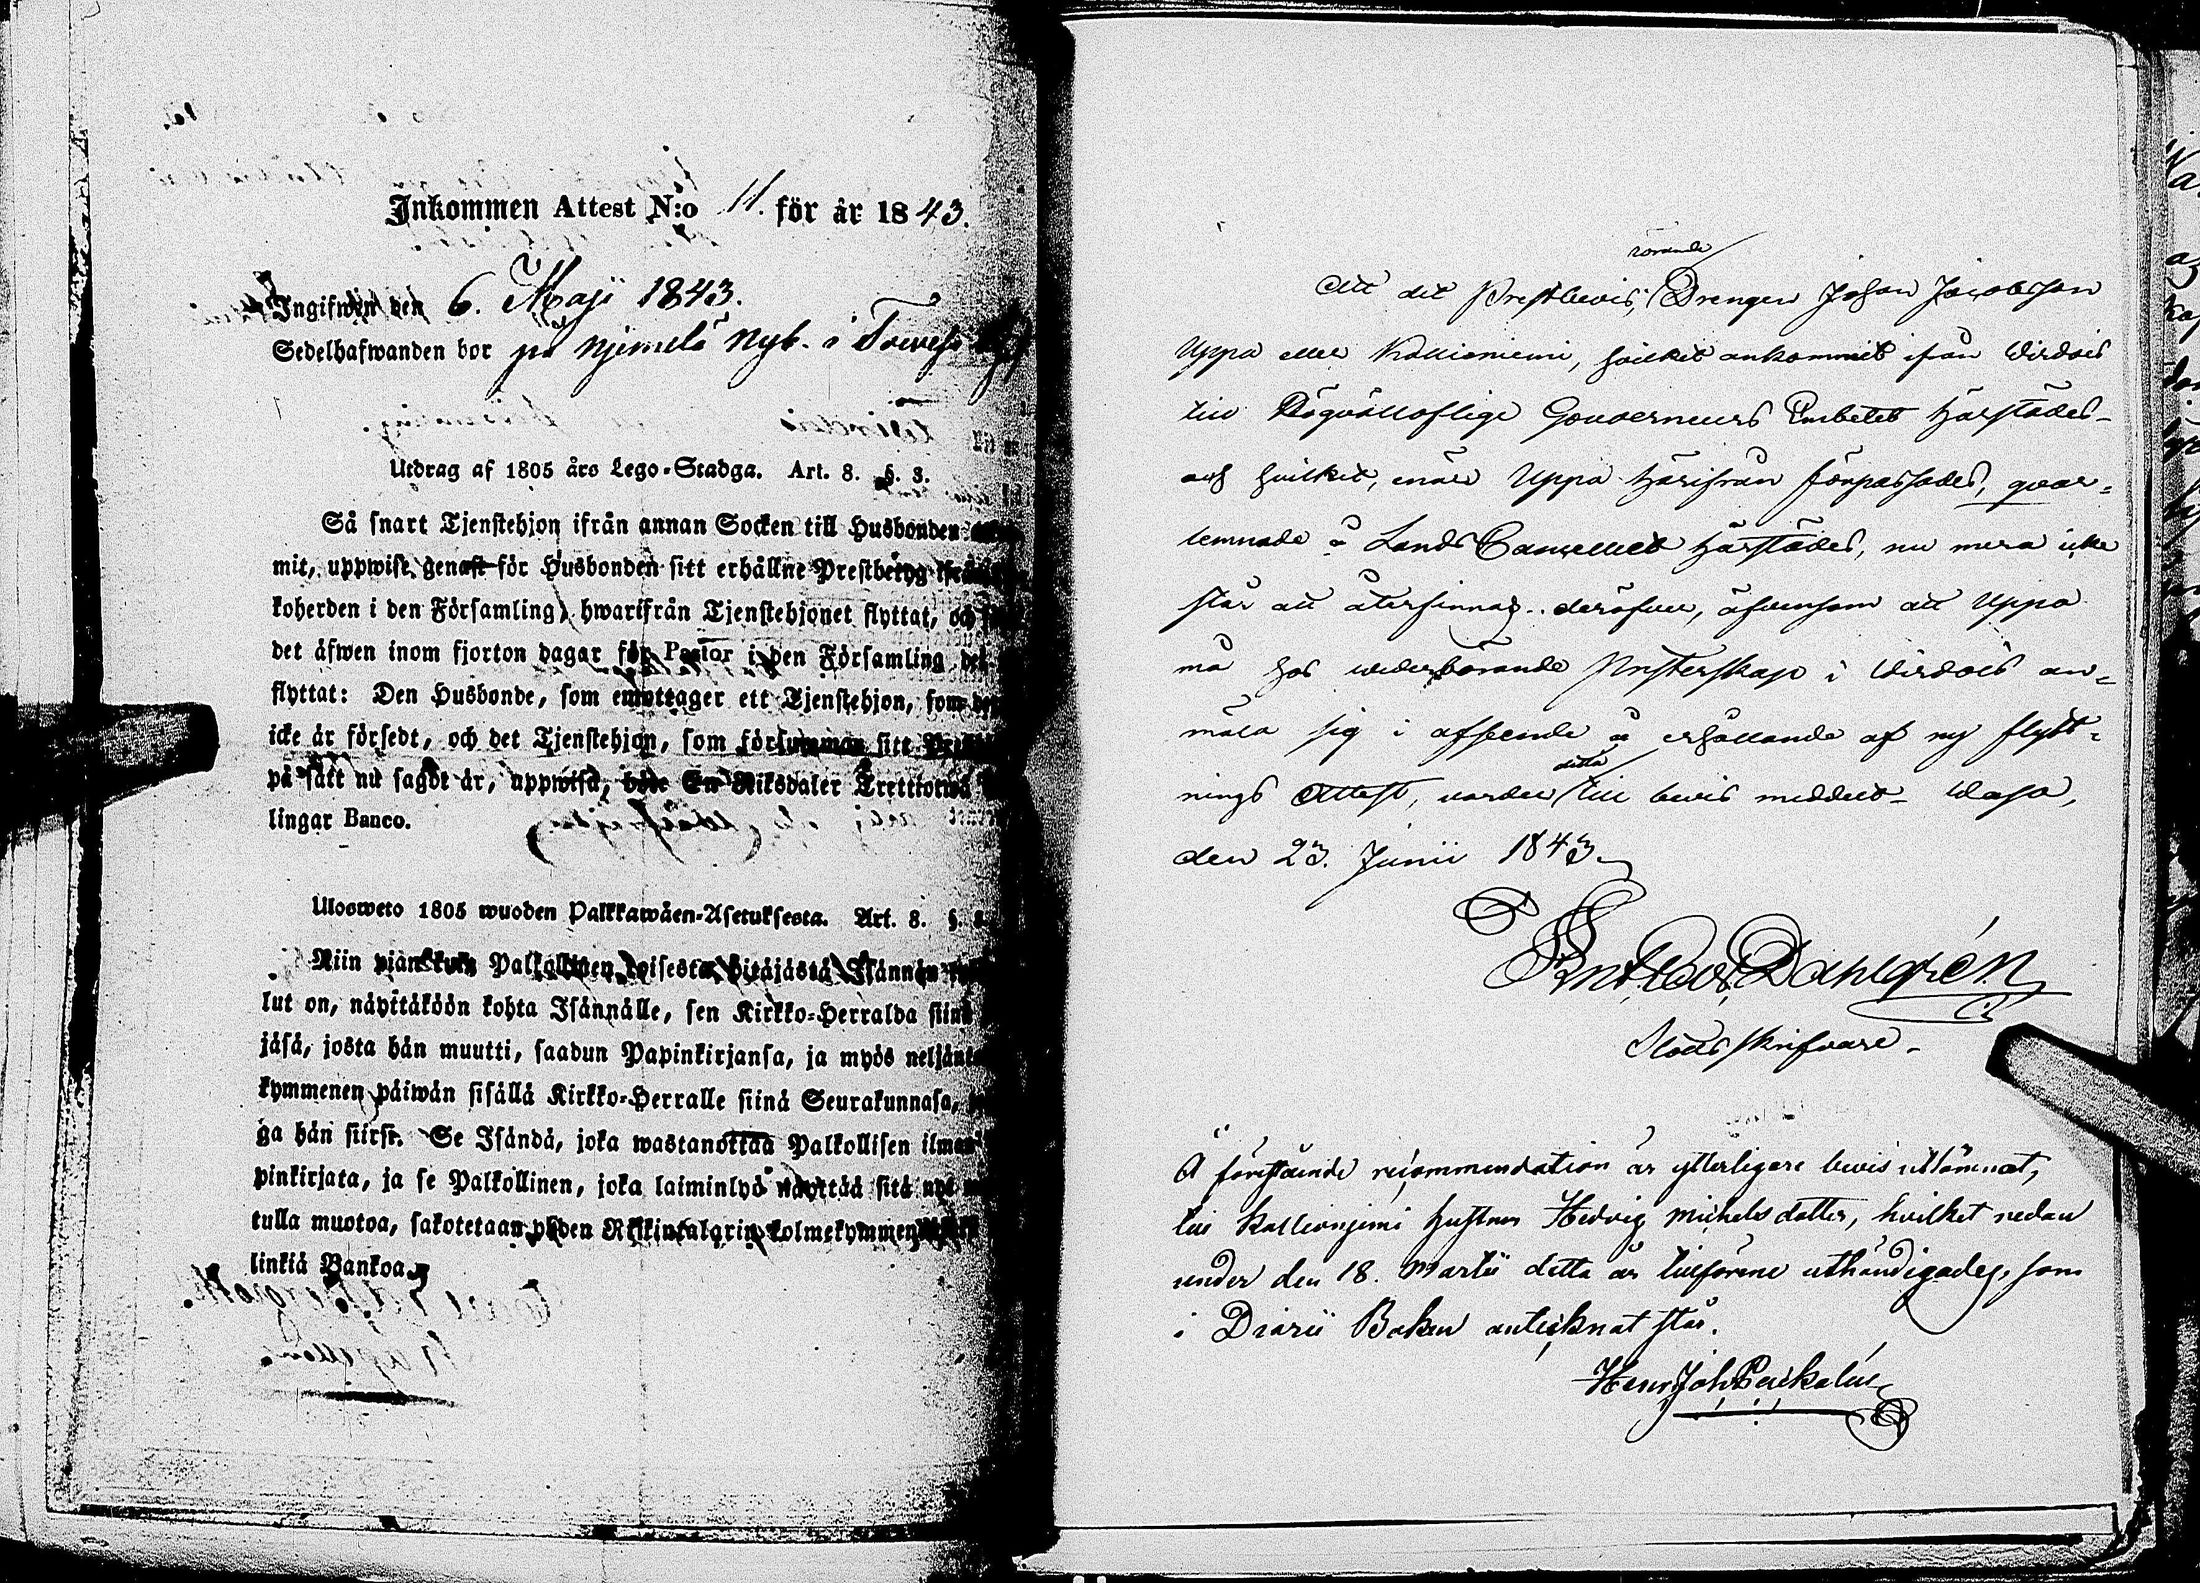 Inkommen Attest N:o 11. för år 1843.
Ingifwen den 6. Maji 1843.
Sedelhafwanden bor på Njemelä Nyb. i
Utdrag af 1805 års Lego-Stadga. Art. 8. §. 3.
Så snart Tjenstehjon ifrån annan Socken till Husbonden
mit, uppwise genast för Husbonden sitt erhållne Prestbetyg
koherden i den Församling, hwarifrån Tjenstehjonet flyttat, och
det äfwen inom fjorton dagar för Pastor i den Församling, det
flyttat: Den Husbonde, som emottager ett Tjenstehjon, som
icke är försedt, och det Tjenstehjon, som försummar sitt
på sått nu sagdt är, uppwisa, böte En Riksdaler Trettiotwå
lingar Banco.
Ulosweto 1805 wuoden Palkkawäen-Asetuksesta. Art. 8. §.
Niin pian kuin Palkollinen toisesta pitäjästä Isännän
lut on, näyttäköön kohta Isännälle, sen Kirkko-Herralda siinä
jäsä, josta hän muutti, saadun Papinkirjansa, ja myös neljäntoista
kymmenen päiwän sisällä Kirkko-Herralle siinä Seurakunnasa,
ga hän siirsi. Se Isändä, joka wastanottaa Palkollisen ilman
pinkirjata, ja se Palkollinen, joka laiminlyö näyttää sitä nyt
tulla muotoa, sakotetaan yhden Riikintalarin kolmekymmentä
linkiä Bankoa.
rörande
Att det Prestbevis, Drengen Johan Jacobsson
Uppa eller Kallioniemi, hvilket ankommit ifrån Wirdois
till Högvälloflige Gouverneurs Embetet härstädes
och hvilket, enär Uppa härifrån förpassades, qvar-
lemnade å Lands Cancelliet härstädes, nu mera icke
står att återfinnas. deröfver, äfvensom att Uppa
må hos wederbörande Presterskap i Wirdois an-
mäla sig i afseende å erhållande af ny flytt-
detta
nings Attest, varder till bevis meddelt. Wasa,
den 23. Junii 1843.
Dahlgrén
Slottsskrifvare.
Å förestående recommendation är ytterligare bevis utlämnat,
till Kallionjemi hustru Hedvig Michelsdotter, hvilket redan
under den 18. Martii detta år tillförene uthändigades, som
i Diarii Boken antecknat står.
Henr. Joh.